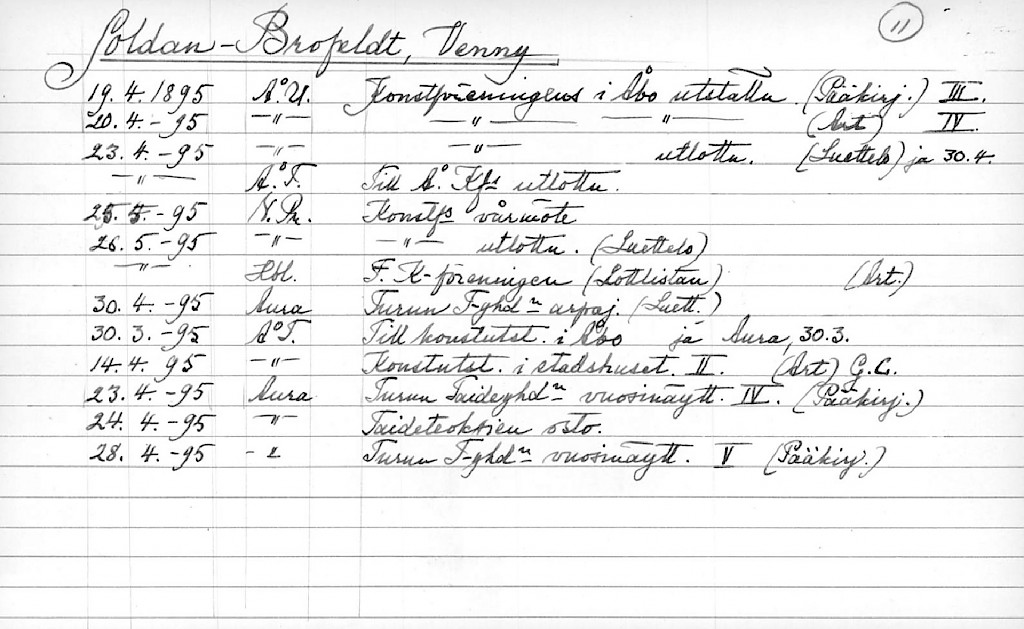 11
Soldan-Brofeldt, Venny
19. 4. 1895 Å.U. Konstföreningens i Åbo utställn. (Pääkirj.) III.
20. 4. -95 —"— —"— —"— (Art) IV.
23. 4. -95 —"— —"— utlottn. (Luettelo) ja 30.4.
—"— Å.T. Till Å. Kfs utlottn.
25. 4. -95 N.Pr. Konstfs vårmöte
26. 5. -95 —"— —"— utlottn. (Luettelo)
—"— Hbl. F. K-föreningen (Lottlistan) (Art.)
30. 4. -95 Aura Turun T-yhd n arpaj. (Luett.)
30. 3. -95 Å.T. Till konstutst. i Åbo ja Aura, 30.3.
14. 4. 95 —"— Konstutst. i stadshuset. II. (Art) G.C.
23. 4. -95 Aura Turun Taideyhd n vuosinäytt. IV. (Pääkirj.)
24. 4. -95 —"— Taideteoksien osto.
28. 4. -95 -"- Turun T-yhd n vuosinäytt. V (Pääkirj.)